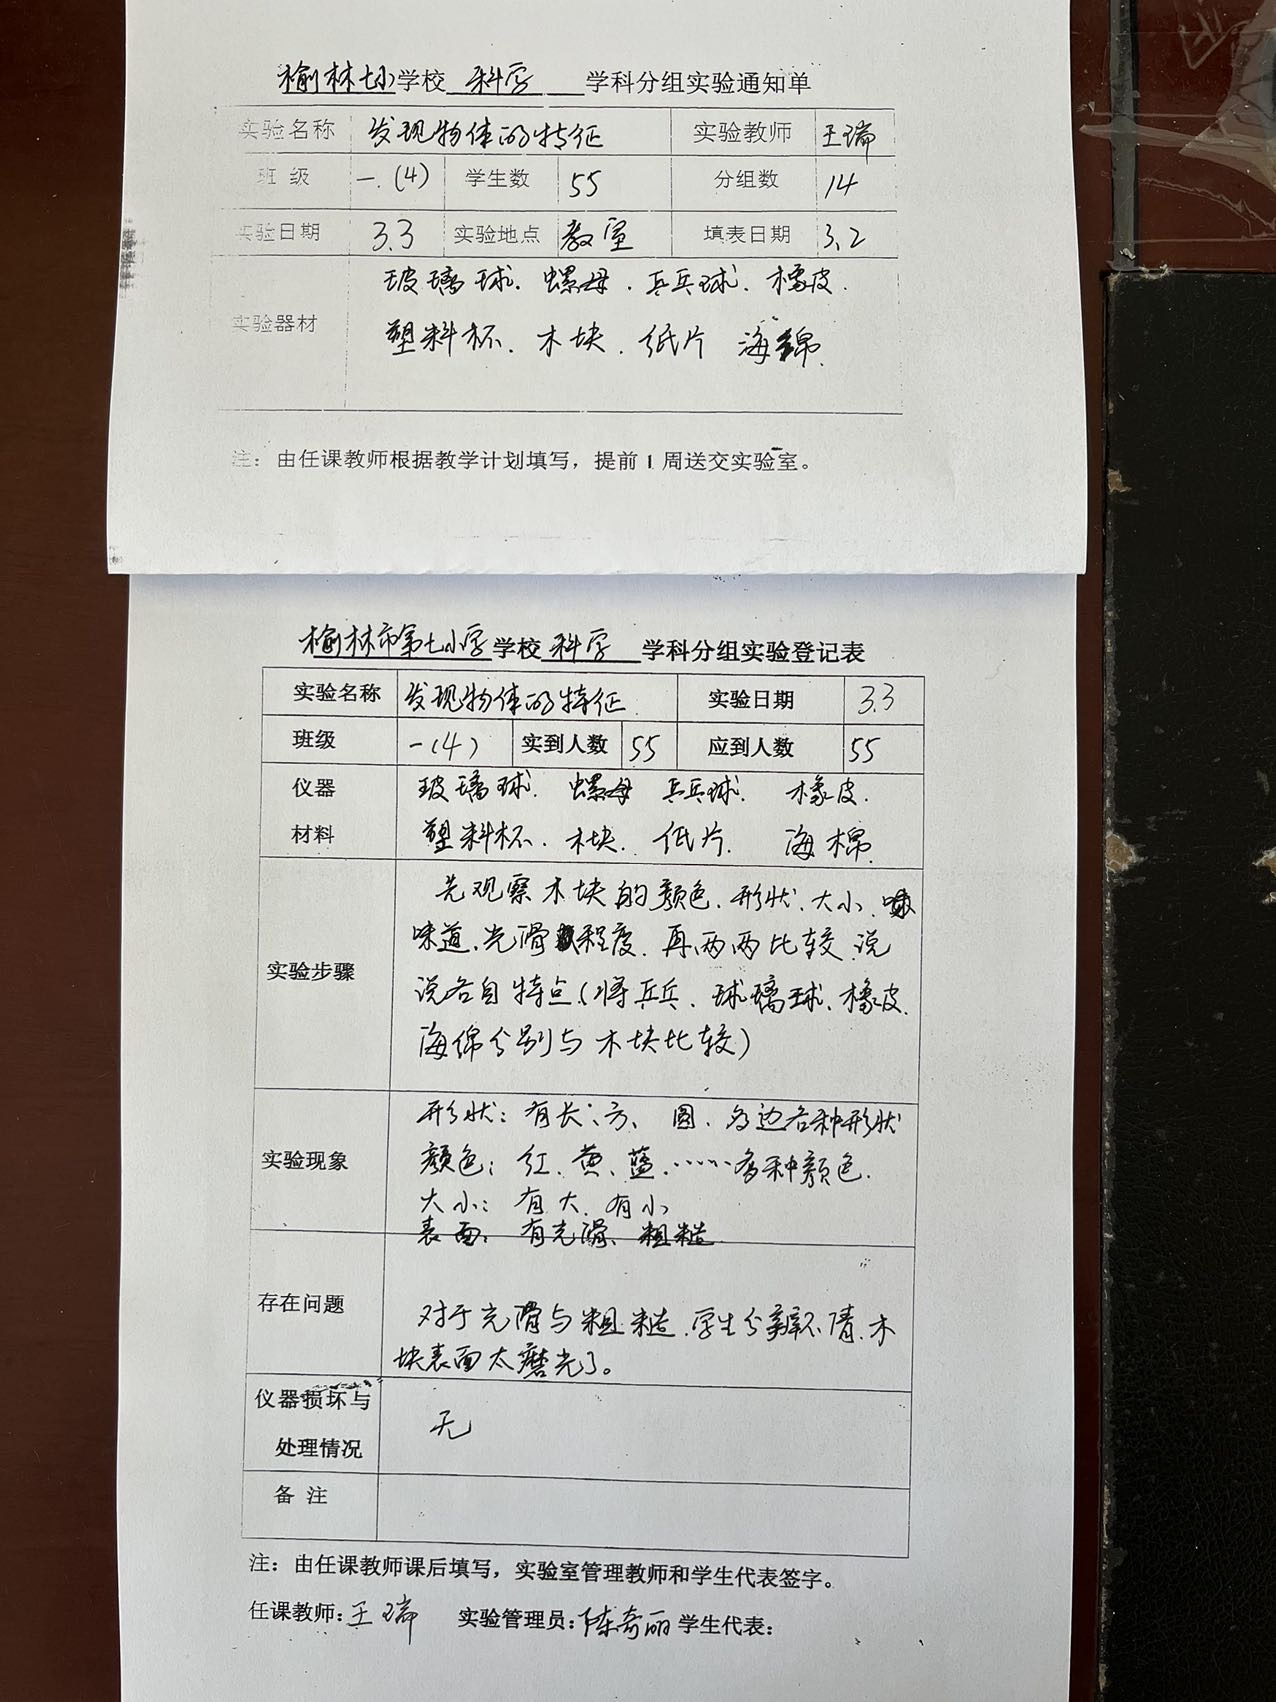 榆林七小学校 科学 学科分组实验通知单
实验名称 发现物体的特征 实验教师 王瑞
班 级 一.(4) 学生数 55 分组数 14
实验日期 3.3 实验地点 教室 填表日期 3.2
玻璃球. 螺母. 乒乓球. 橡皮.
实验器材
塑料杯. 木块. 纸片 海绵.
注：由任课教师根据教学计划填写，提前1周送交实验室。
榆林市第七小学学校 科学 学科分组实验登记表
实验名称 发现物体的特征 实验日期 3.3
班级 一(4) 实到人数 55 应到人数 55
仪器 玻璃球. 螺母 乒乓球. 橡皮.
材料 塑料杯. 木块. 纸片. 海棉.
先观察木块的颜色.形状.大小.
味道.光滑程度.再两两比较.说
实验步骤
说各自特点.(将乒乓.球璃球.橡皮.
海绵分别与木块比较)
形状：有长、方、圆.多边各种形状
实验现象
颜色：红、黄、蓝.……多种颜色.
大小：有大.有小
表面：有光滑、粗糙.
存在问题
对于光滑与粗糙.学生分辨不清.木
块表面太磨光了。
仪器损坏与
无
处理情况
备 注
注：由任课教师课后填写，实验室管理教师和学生代表签字。
任课教师：王瑞 实验管理员：陈奇丽 学生代表：